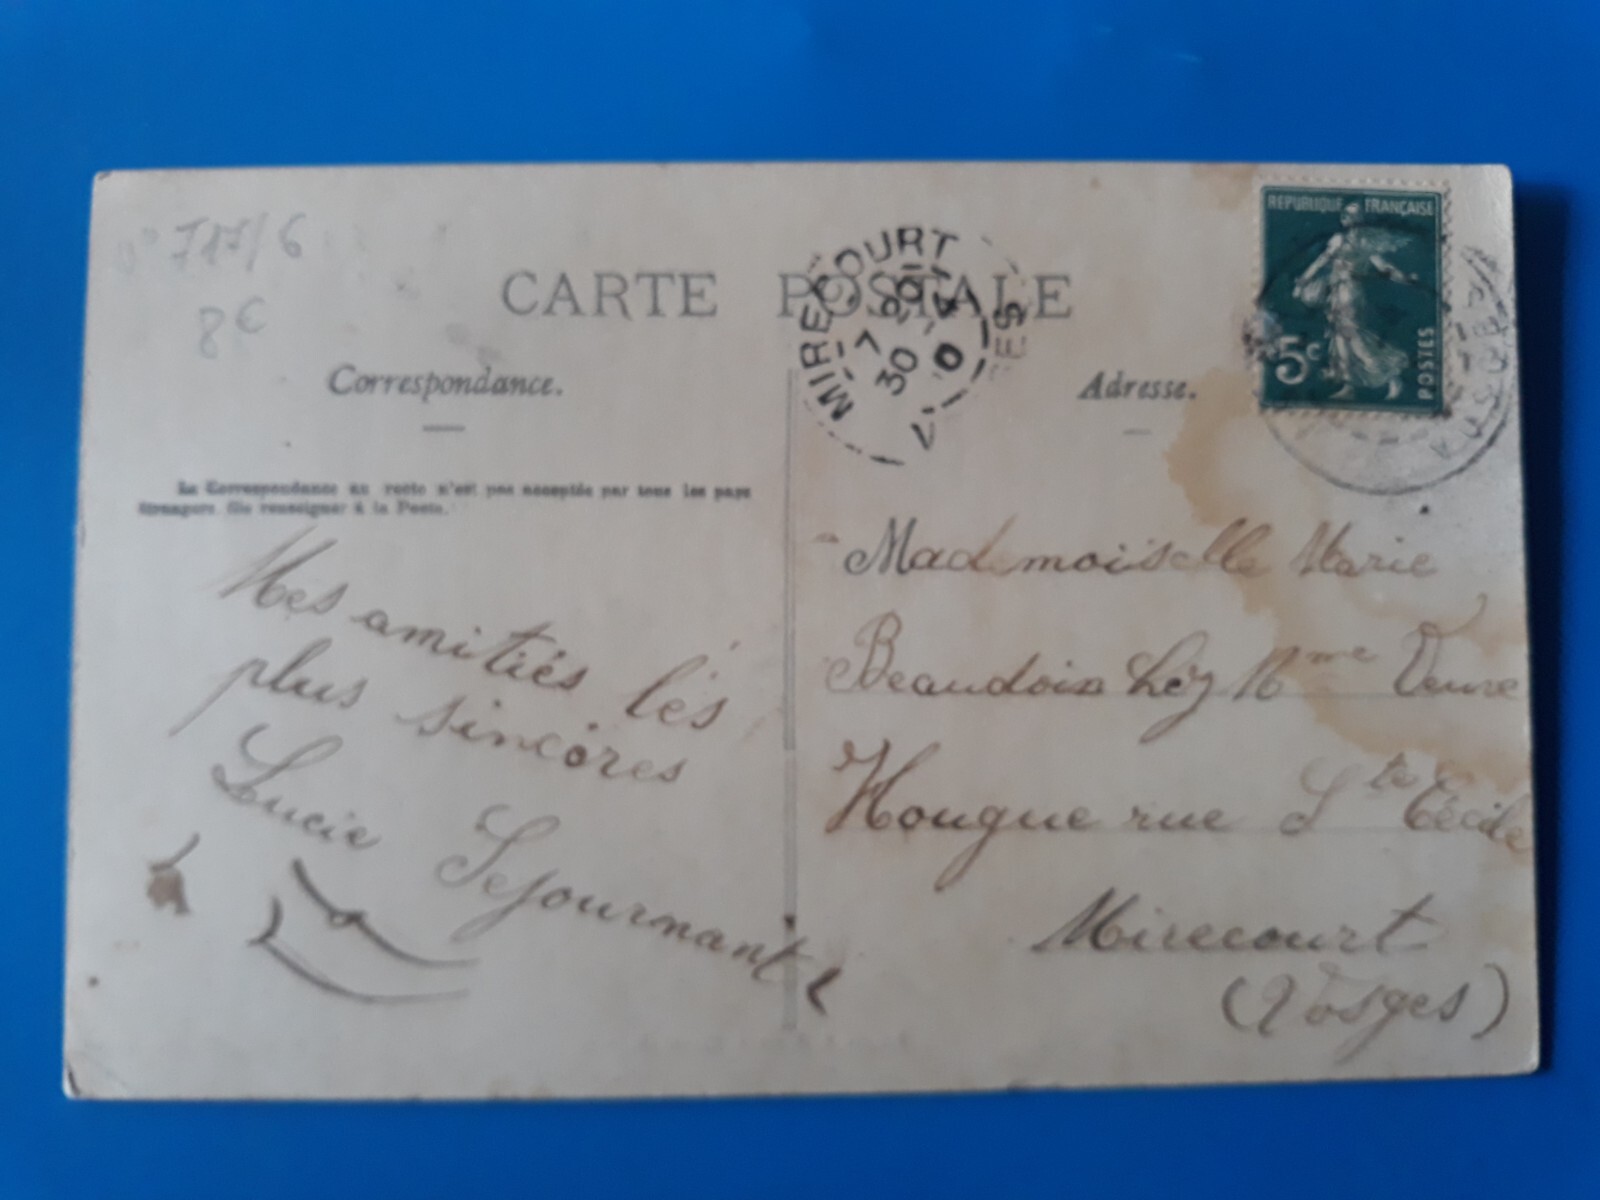 717/6
8€
CARTE POSTALE
Correspondance.
Adresse.
La Correspondance au recto n'est pas acceptée par tous les pays
étrangers. (Se renseigner à la Poste.
MIRECOURT
7 20
30 -4
0
REPUBLIQUE FRANÇAISE
5c
POSTES
Mes amitiés lés
plus sincères
Lucie Sejournant
Mademoiselle Marie
Beaudoin chez Mme Veuve
Hougue rue Ste Cécile
Mirecourt
(Vosges)